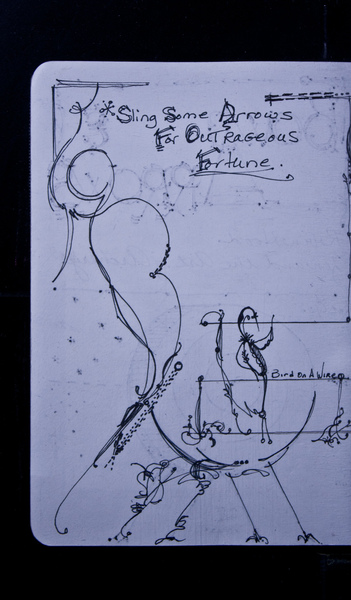 *Sling Some Arrows
For OuTRageous
Fortune.
Bird on A Wire